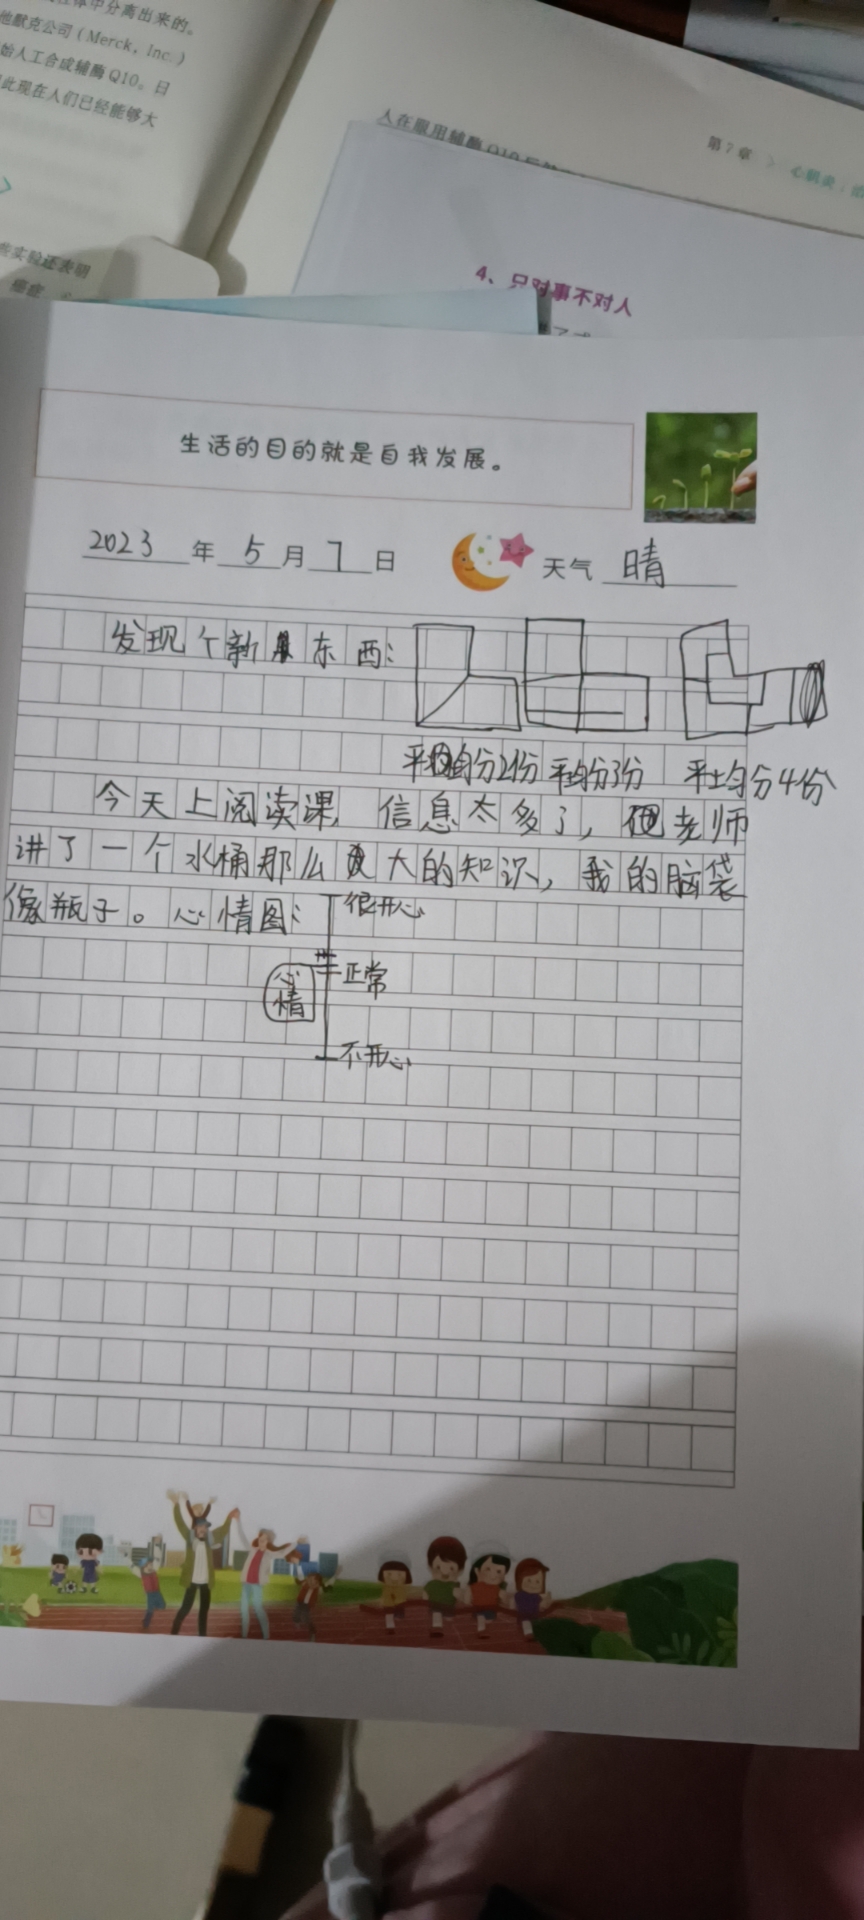 体中分离出来的。
他默克公司（Merck，Inc.）
始人工合成辅酶Q10。日
此现在人们已经能够大
些实验还表明
癌症
人在服用辅酶Q10后
第7章 > 心肌炎：
4、只对事不对人
生活的目的就是自我发展。
2023年5月7日 天气 晴
发现个新东西：
平均分2份 平均分3份 平均分4份
今天上阅读课，信息太多了，老师
讲了一个水桶那么大的知识，我的脑袋
像瓶子。心情图：
很开心
心情
正常
不开心